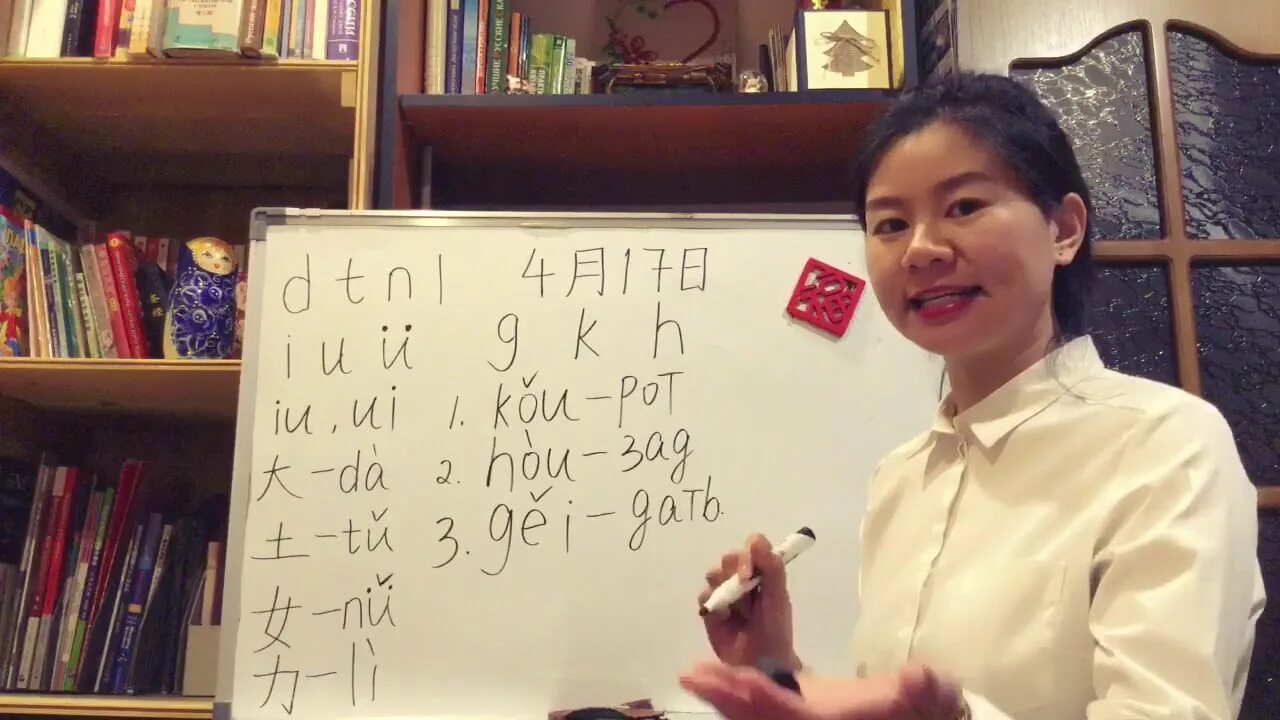 d t n l 4月17日
i u ü g k h
iu, ui 1. kǒu – рот
大 – dà 2. hòu – зад
土 – tǔ 3. gěi – дать.
女 – nǚ
力 – lì
福